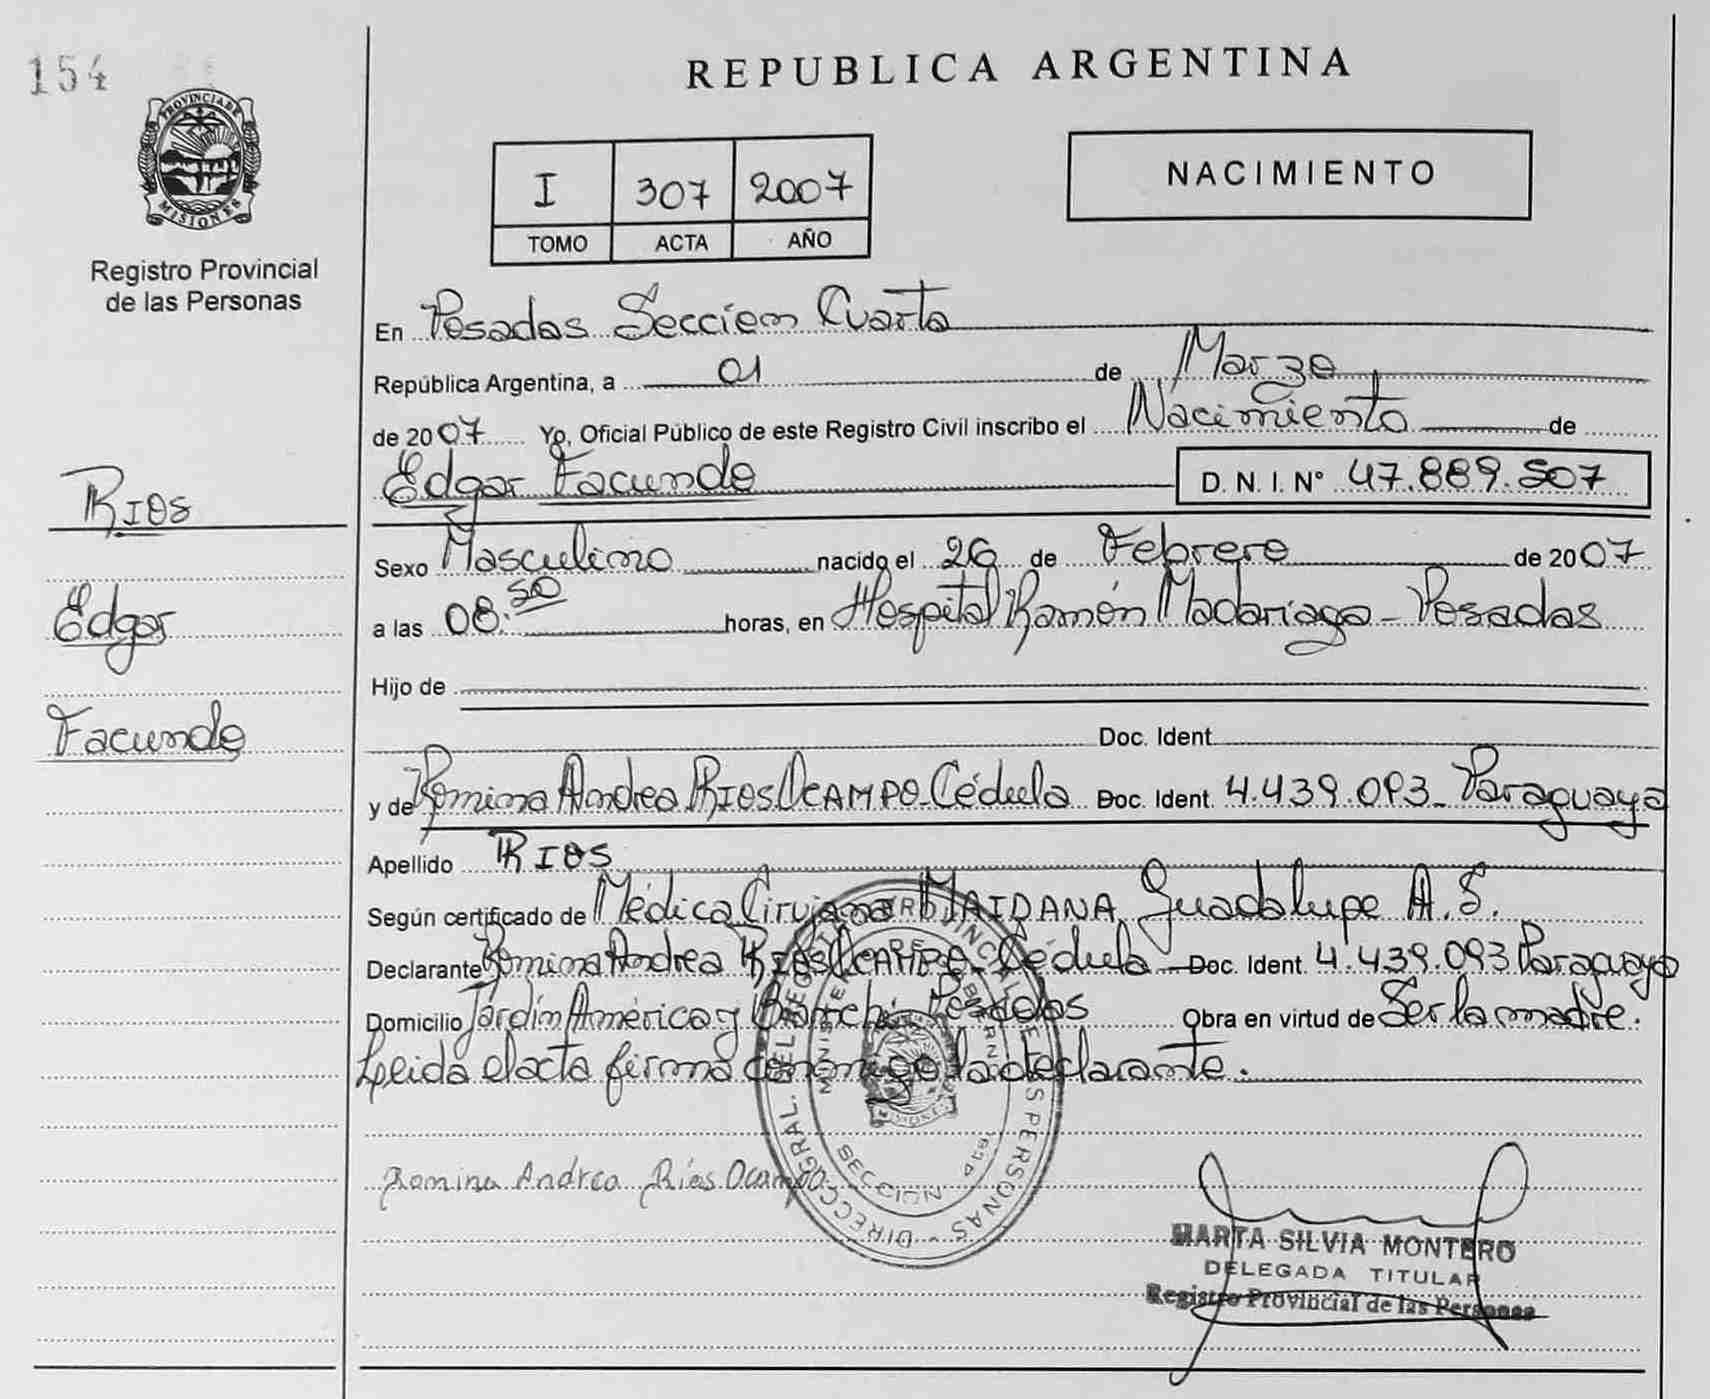 154
PROVINCIA DE
MISIONES
Registro Provincial
de las Personas
REPUBLICA ARGENTINA
I 307 2007
TOMO ACTA AÑO
NACIMIENTO
En Posadas Sección Cuarta
República Argentina, a 01 de Marzo
de 2007 Yo, Oficial Público de este Registro Civil inscribo el Nacimiento de
Edgar Facundo D. N. I. Nº 47.889.507
RIOS
Edgar
Facundo
Sexo Masculino nacido el 26 de Febrero de 2007
a las 08:50 horas, en Hospital Ramón Madariaga - Posadas
Hijo de
Doc. Ident.
y de Romina Andrea RIOS OCAMPO - Cédula Doc. Ident. 4.439.093 - Paraguaya
Apellido RIOS
Según certificado de Médica Cirujana MAIDANA, Guadalupe A. S.
Declarante Romina Andrea RIOS OCAMPO - Cédula Doc. Ident. 4.439.093 Paraguaya
Domicilio Jardín América y Posadas Obra en virtud de Ser la madre.
Leída el acta firma conmigo la declarante.
Romina Andrea Ríos Ocampo
MARTA SILVIA MONTERO
DELEGADA TITULAR
Registro Provincial de las Personas
DIRECC. GRAL. DEL REGISTRO PROVINCIAL DE LAS PERSONAS
MINISTERIO DE GOBIERNO
SECCION 4ta